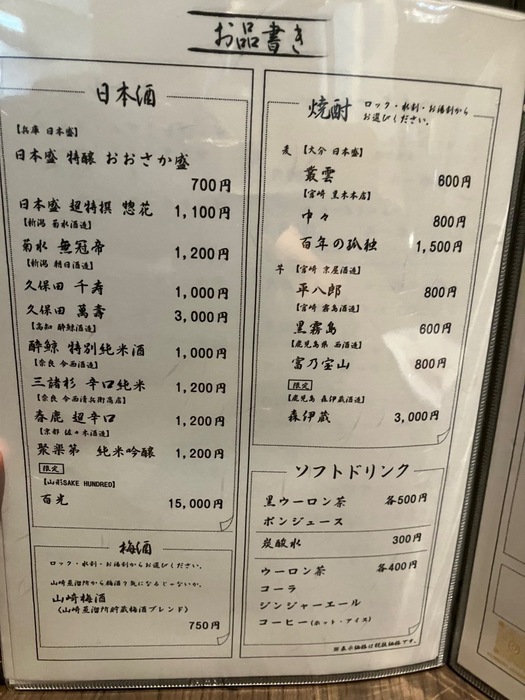 お品書き
日本酒
【兵庫 日本盛】
日本盛 特醸 おおさか盛
700円
日本盛 超特撰 惣花 1,100円
【新潟 菊水酒造】
菊水 無冠帝 1,200円
【新潟 朝日酒造】
久保田 千寿 1,000円
久保田 萬壽 3,000円
【高知 酔鯨酒造】
酔鯨 特別純米酒 1,000円
【奈良 今西酒造】
三諸杉 辛口純米 1,200円
【奈良 今西清兵衛商店】
春鹿 超辛口 1,200円
【京都 佐々木酒造】
聚楽第 純米吟醸 1,200円
限定
【山形SAKE HUNDRED】
百光 15,000円
梅酒
ロック・水割・お湯割からお選びください。
山崎蒸溜所から梅酒？気になるじゃないか。
山崎梅酒
(山崎蒸溜所貯蔵梅酒ブレンド)
750円
焼酎 ロック・水割・お湯割から
お選びください。
麦 【大分 日本盛】
叢雲 600円
【宮崎 黒木本店】
中々 800円
百年の孤独 1,500円
芋 【宮崎 京屋酒造】
平八郎 800円
【宮崎 霧島酒造】
黒霧島 600円
【鹿児島県 西酒造】
富乃宝山 800円
限定
【鹿児島 森伊蔵酒造】
森伊蔵 3,000円
ソフトドリンク
黒ウーロン茶 各500円
ポンジュース
炭酸水 300円
ウーロン茶 各400円
コーラ
ジンジャーエール
コーヒー(ホット・アイス)
※表示価格は税抜価格です。